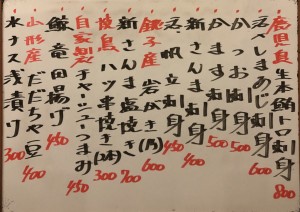 鹿児島産 生本鮪トロ刺身 800
活〆しまあじ刺身 600
かつお刺身 500
かんぱち刺身 500
新さんま刺身 400
活帆立刺身 450
銚子産 岩がき(1ヶ) 600
新さんま塩焼き 700
焼鳥 ハツ串焼き(2本) 300
自家製 チャーシューつまみ 450
鯨竜田揚げ 450
山形産 だだちゃ豆 400
水ナス浅漬け 300